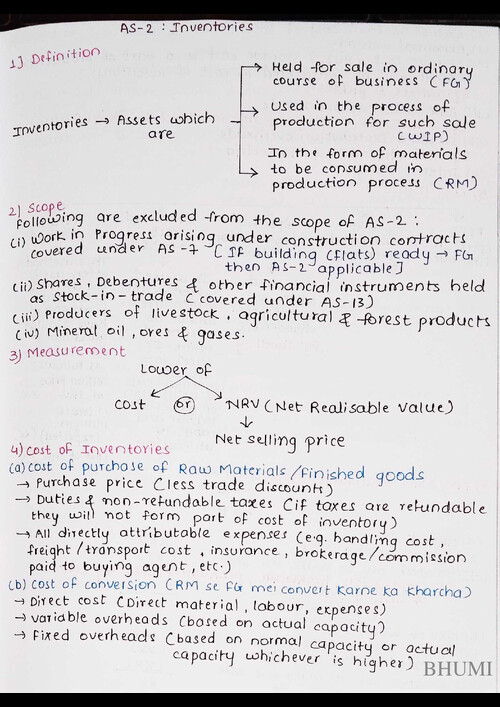 AS-2 : Inventories
1] Definition
Inventories → Assets which are
→ Held for sale in ordinary
course of business (FG)
→ Used in the process of
production for such sale
(WIP)
→ In the form of materials
to be consumed in
production process (RM)
2) Scope
Following are excluded from the scope of AS-2 :
(i) Work in Progress arising under construction contracts
covered under AS-7 [If building (flats) ready → FG
then AS-2 applicable]
(ii) Shares, Debentures & other financial instruments held
as stock-in-trade (covered under AS-13)
(iii) Producers of livestock, agricultural & forest products
(iv) Mineral oil, ores & gases.
3) Measurement
Lower of
Cost or NRV (Net Realisable Value)
↓
Net selling price
4) Cost of Inventories
(a) Cost of purchase of Raw Materials/Finished goods
→ Purchase price (less trade discounts)
→ Duties & non-refundable taxes (if taxes are refundable
they will not form part of cost of inventory)
→ All directly attributable expenses (e.g. handling cost,
freight/transport cost, insurance, brokerage/commission
paid to buying agent, etc.)
(b) Cost of conversion (RM se FG mei convert karne ka kharcha)
→ Direct cost (Direct material, labour, expenses)
→ Variable overheads (based on actual capacity)
→ Fixed overheads (based on normal capacity or actual
capacity whichever is higher)
BHUMI